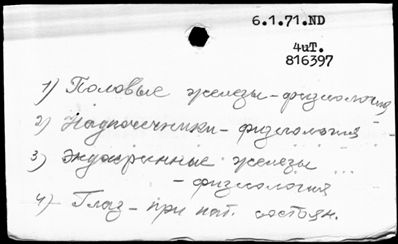 6.1.71.ND
4иТ.
816397
1) Половые железы - физиология
2) Надпочечники - физиология
3) Эндокринные железы
- физиология
4) Глаз - при пат. состоян.